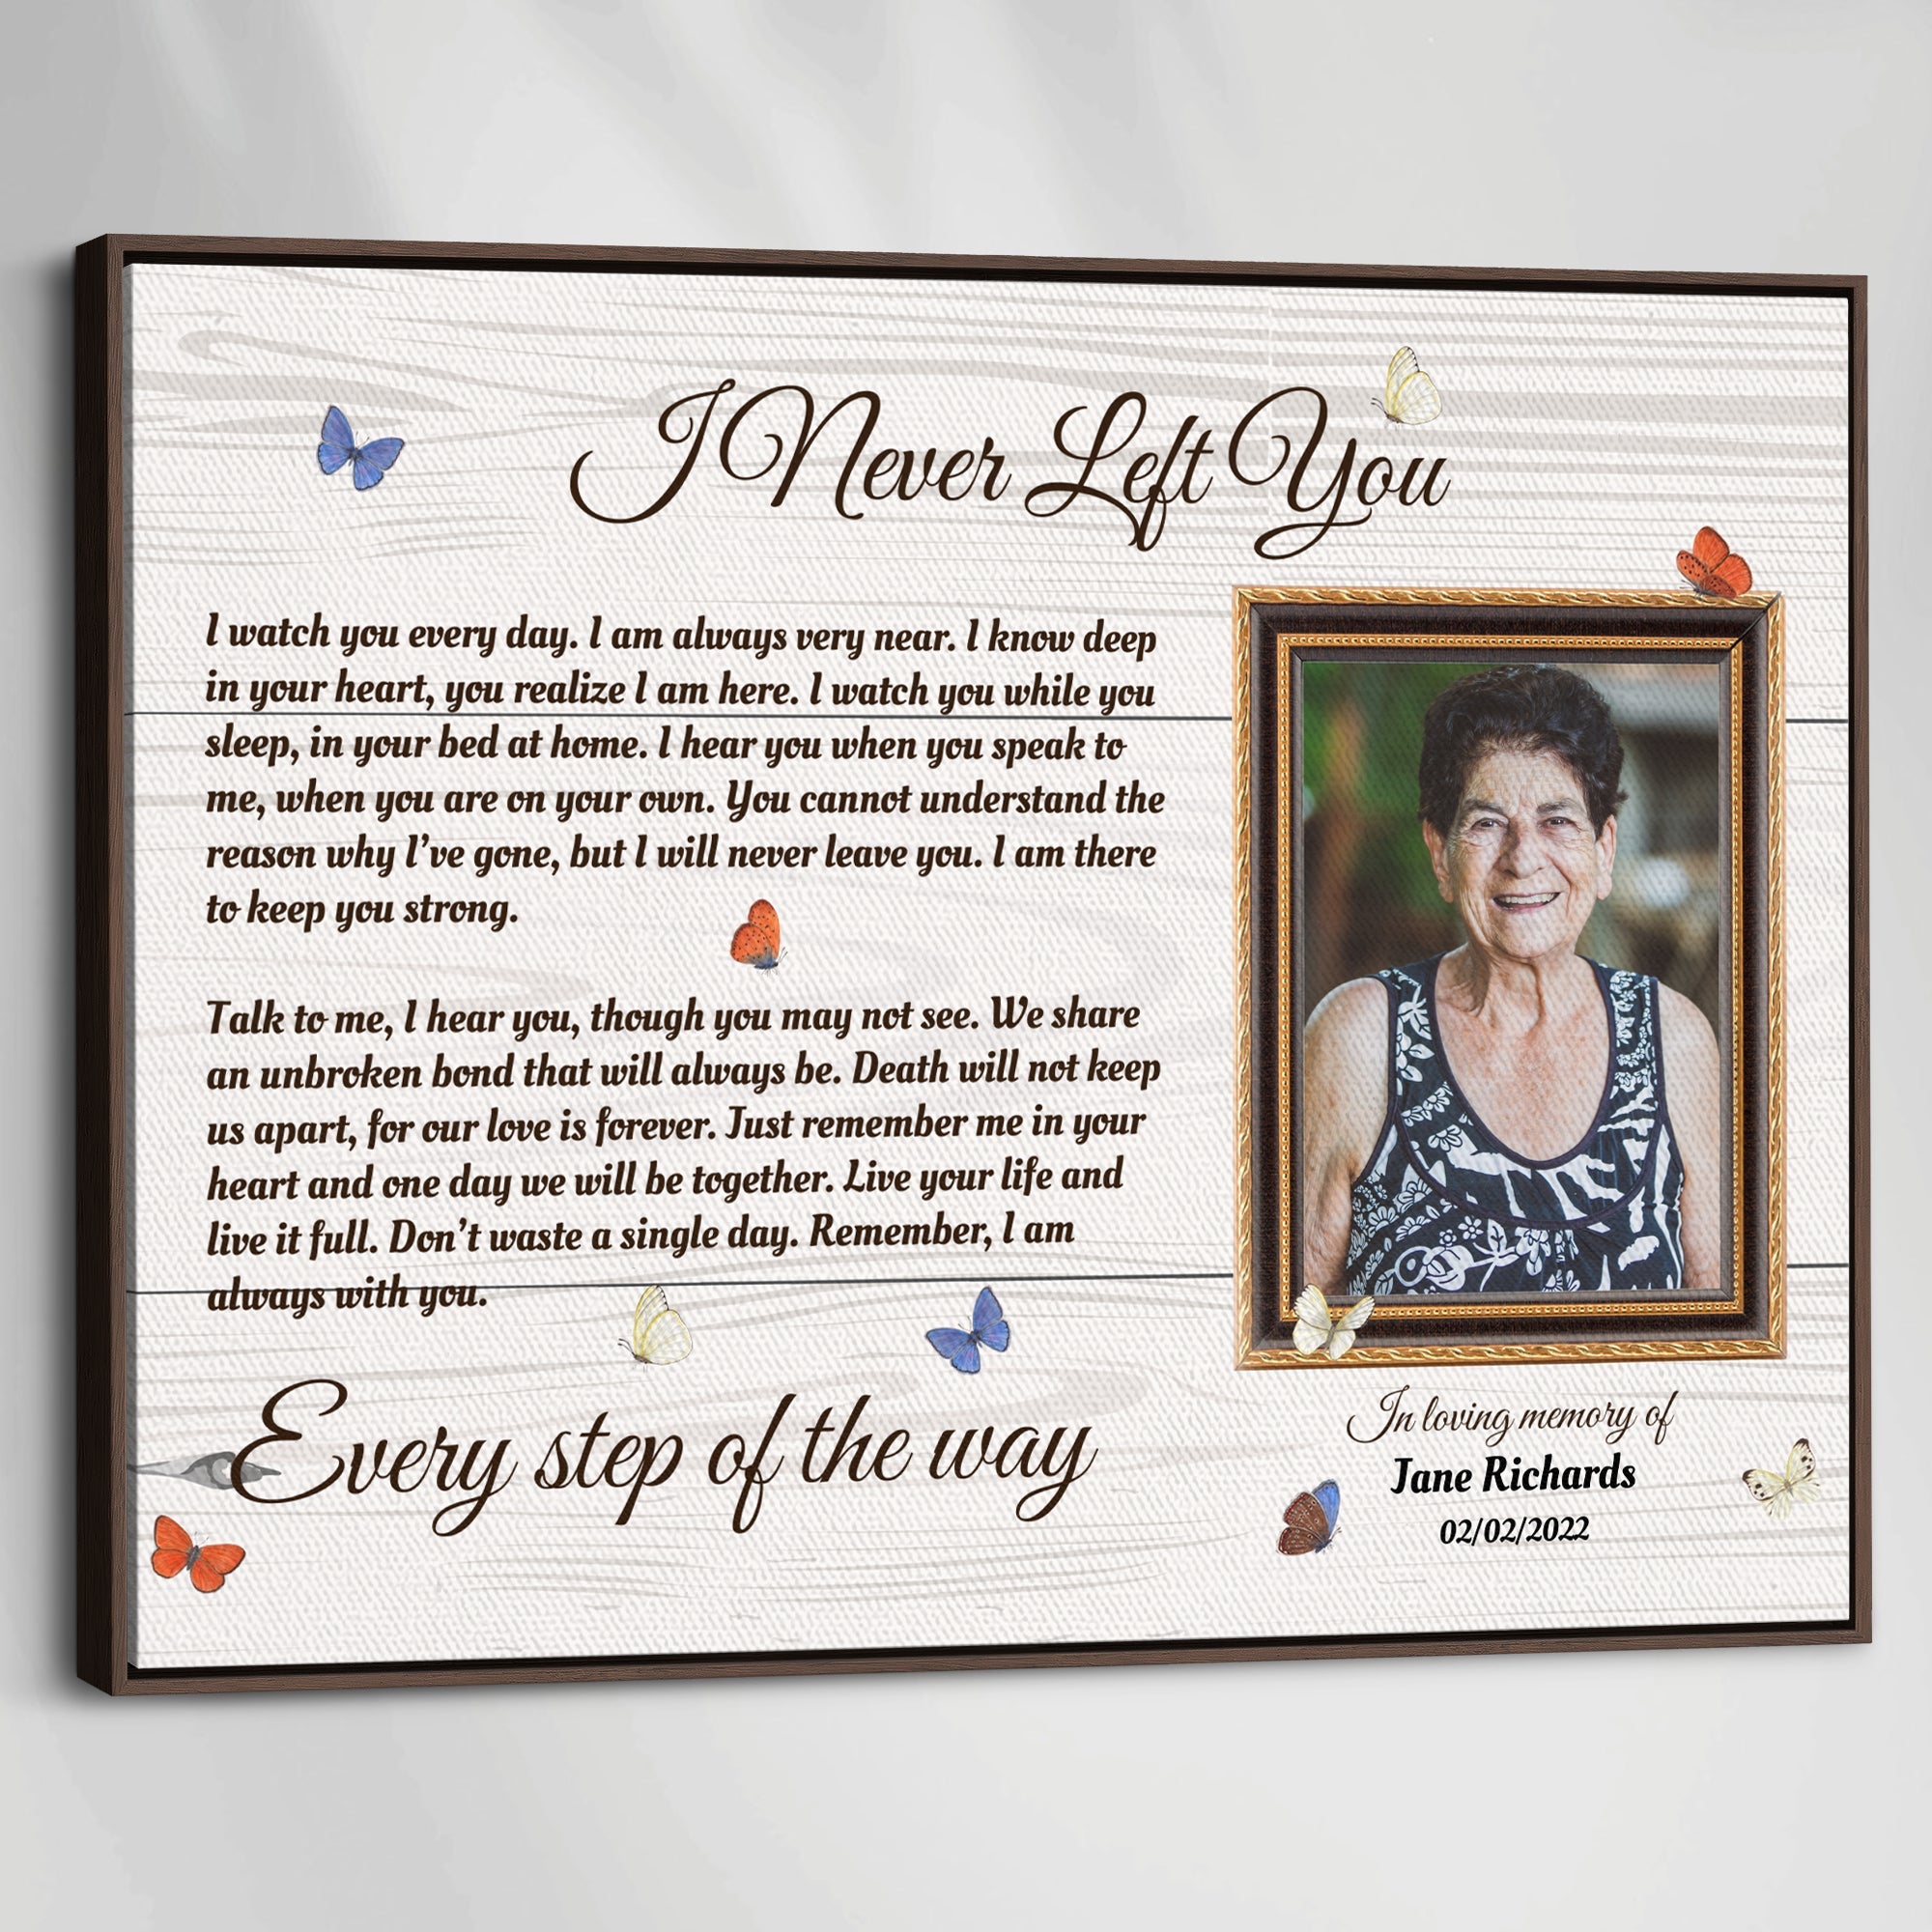 I Never Left You
I watch you every day. I am always very near. I know deep
in your heart, you realize I am here. I watch you while you
sleep, in your bed at home. I hear you when you speak to
me, when you are on your own. You cannot understand the
reason why I’ve gone, but I will never leave you. I am there
to keep you strong.
Talk to me, I hear you, though you may not see. We share
an unbroken bond that will always be. Death will not keep
us apart, for our love is forever. Just remember me in your
heart and one day we will be together. Live your life and
live it full. Don’t waste a single day. Remember, I am
always with you.
Every step of the way
In loving memory of
Jane Richards
02/02/2022